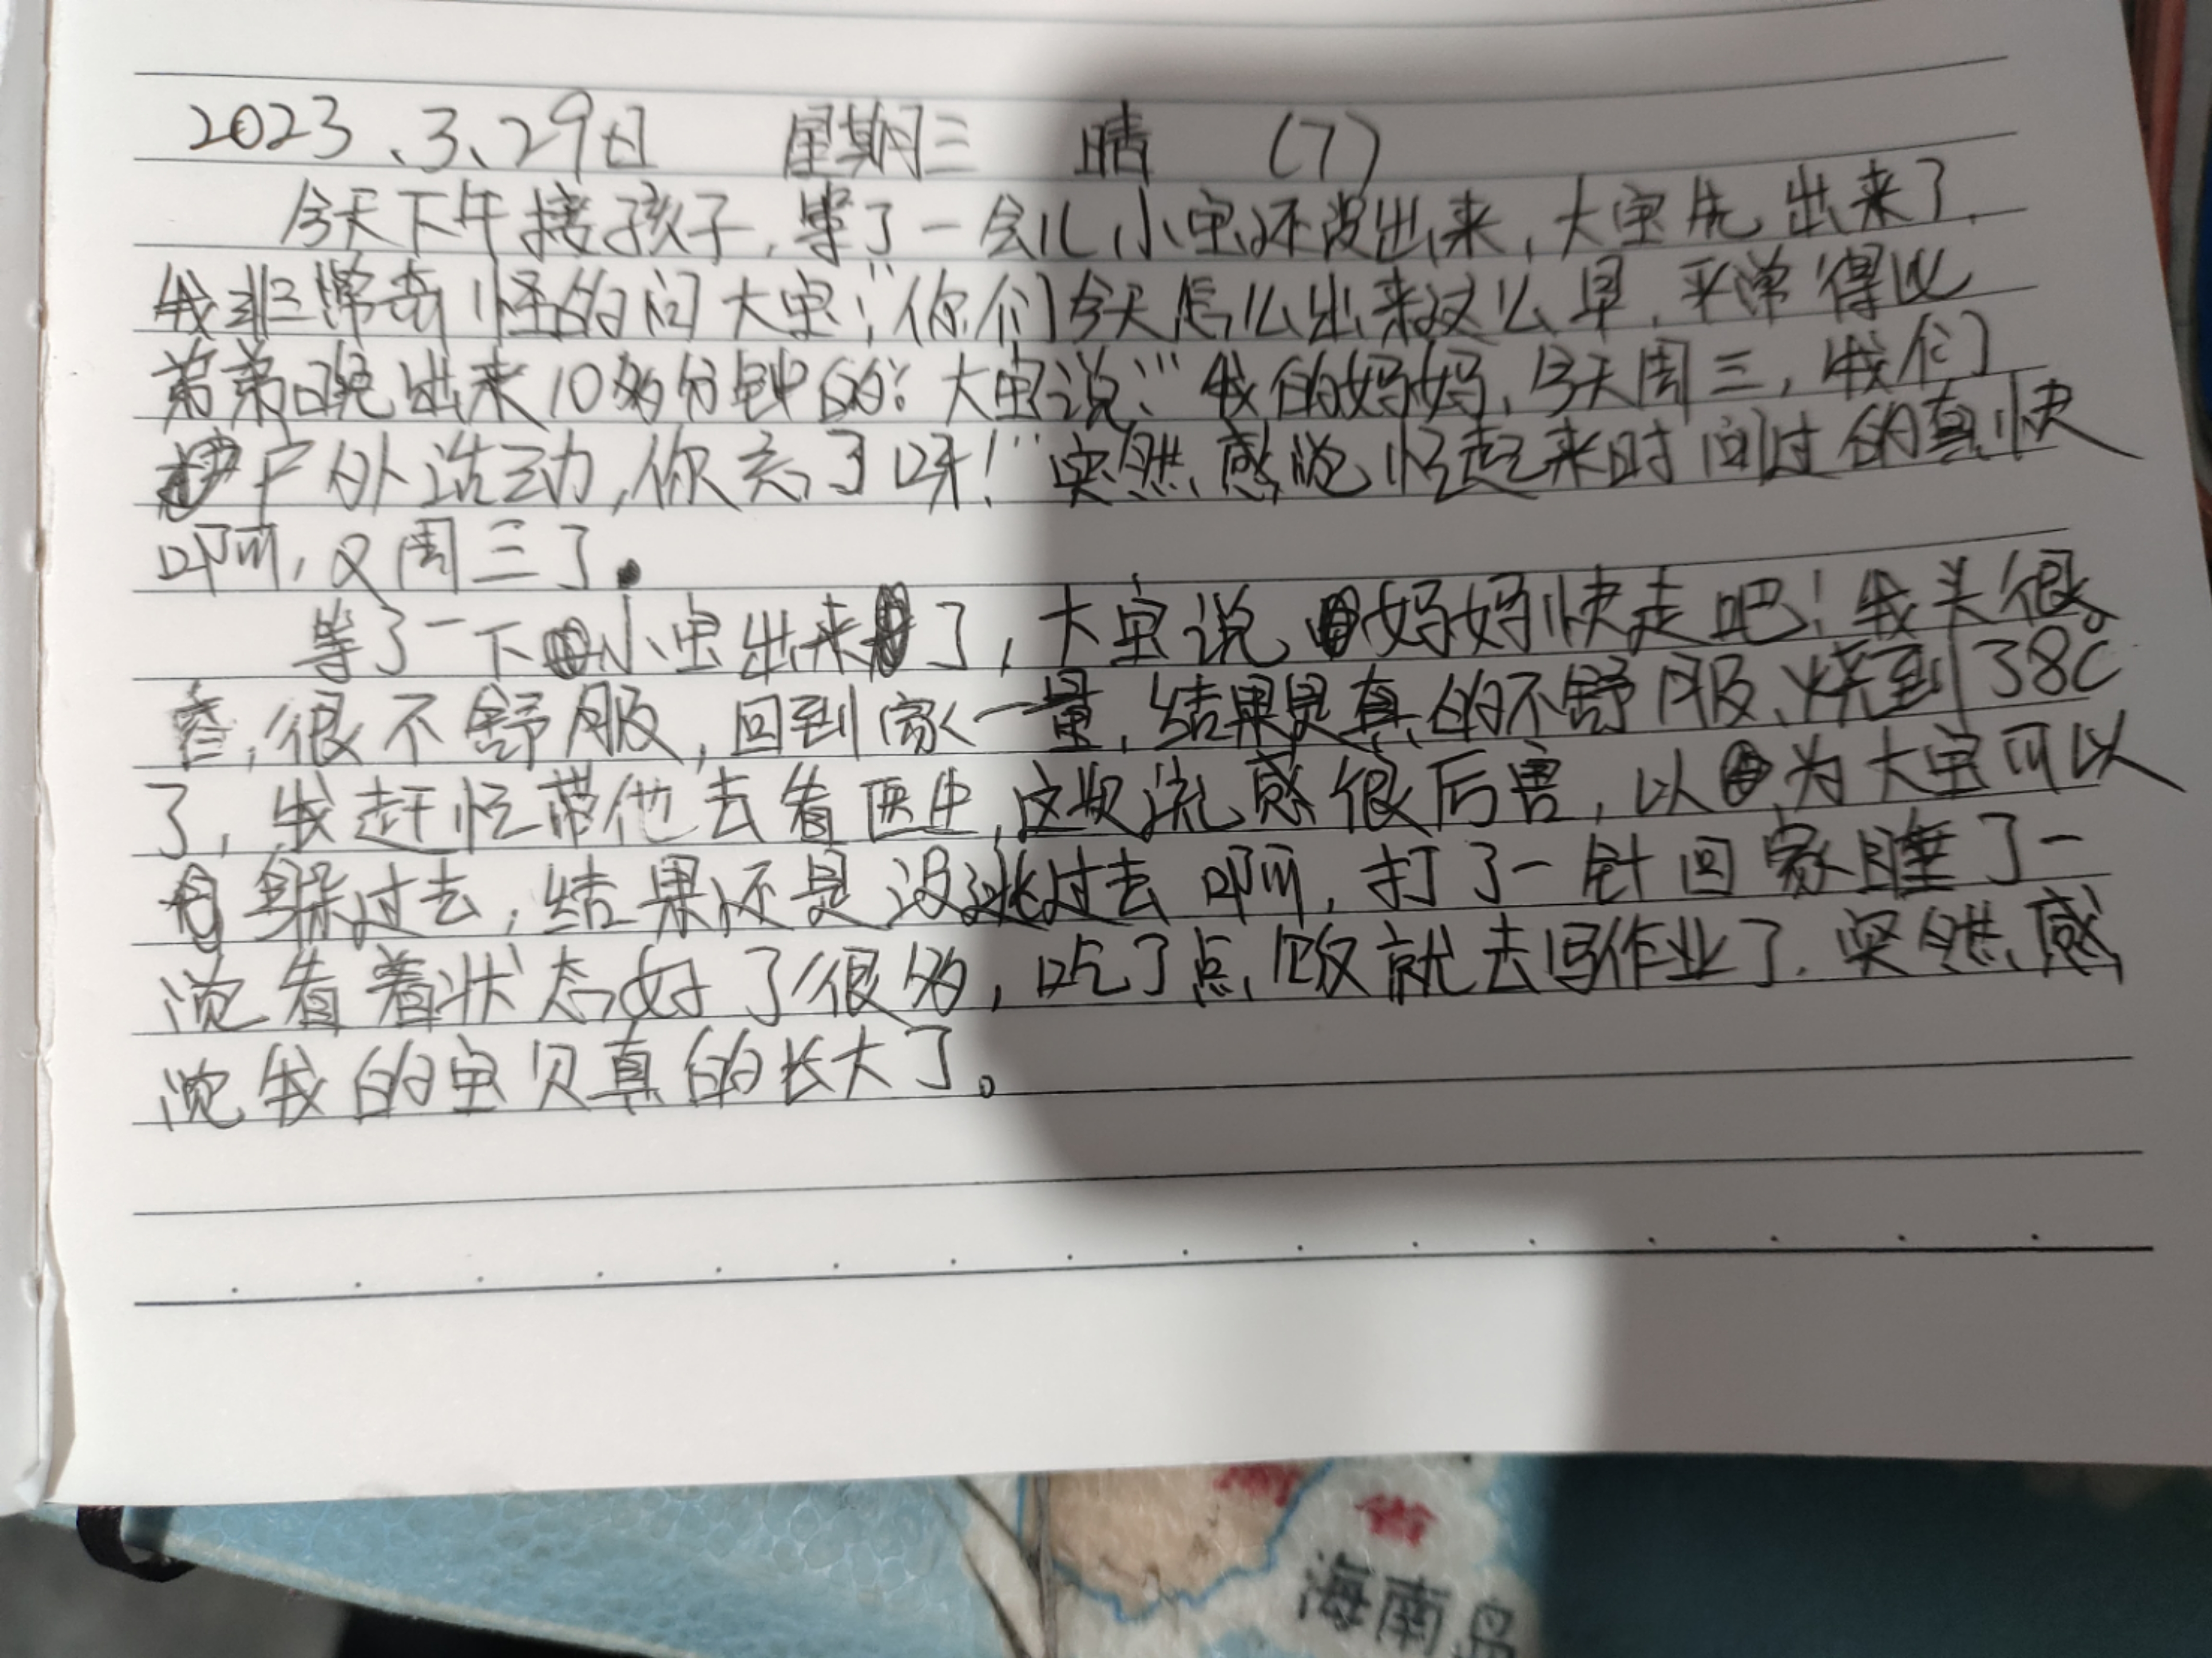 2023、3、29日 星期三 晴 (7)
今天下午接孩子,等了一会儿,小宝还没出来,大宝先出来了,
我非常奇怪的问大宝:“你们今天怎么出来这么早,平常得比
弟弟晚出来10多分钟的?大宝说:“我的妈妈,今天周三,我们
户外活动,你忘了呀!”突然感觉忙起来时间过的真快
啊,又周三了.
等了一下小宝出来了,大宝说妈妈快走吧!我头很
昏,很不舒服,回到家一量,结果是真的不舒服、烧到38℃
了,我赶忙带他去看医生,这次流感很厉害,以为大宝可以
躲过去,结果还是没逃过去啊,打了一针回家睡了一
觉看着状态好了很多,吃了点饭就去写作业了.突然感
觉我的宝贝真的长大了。
海南岛